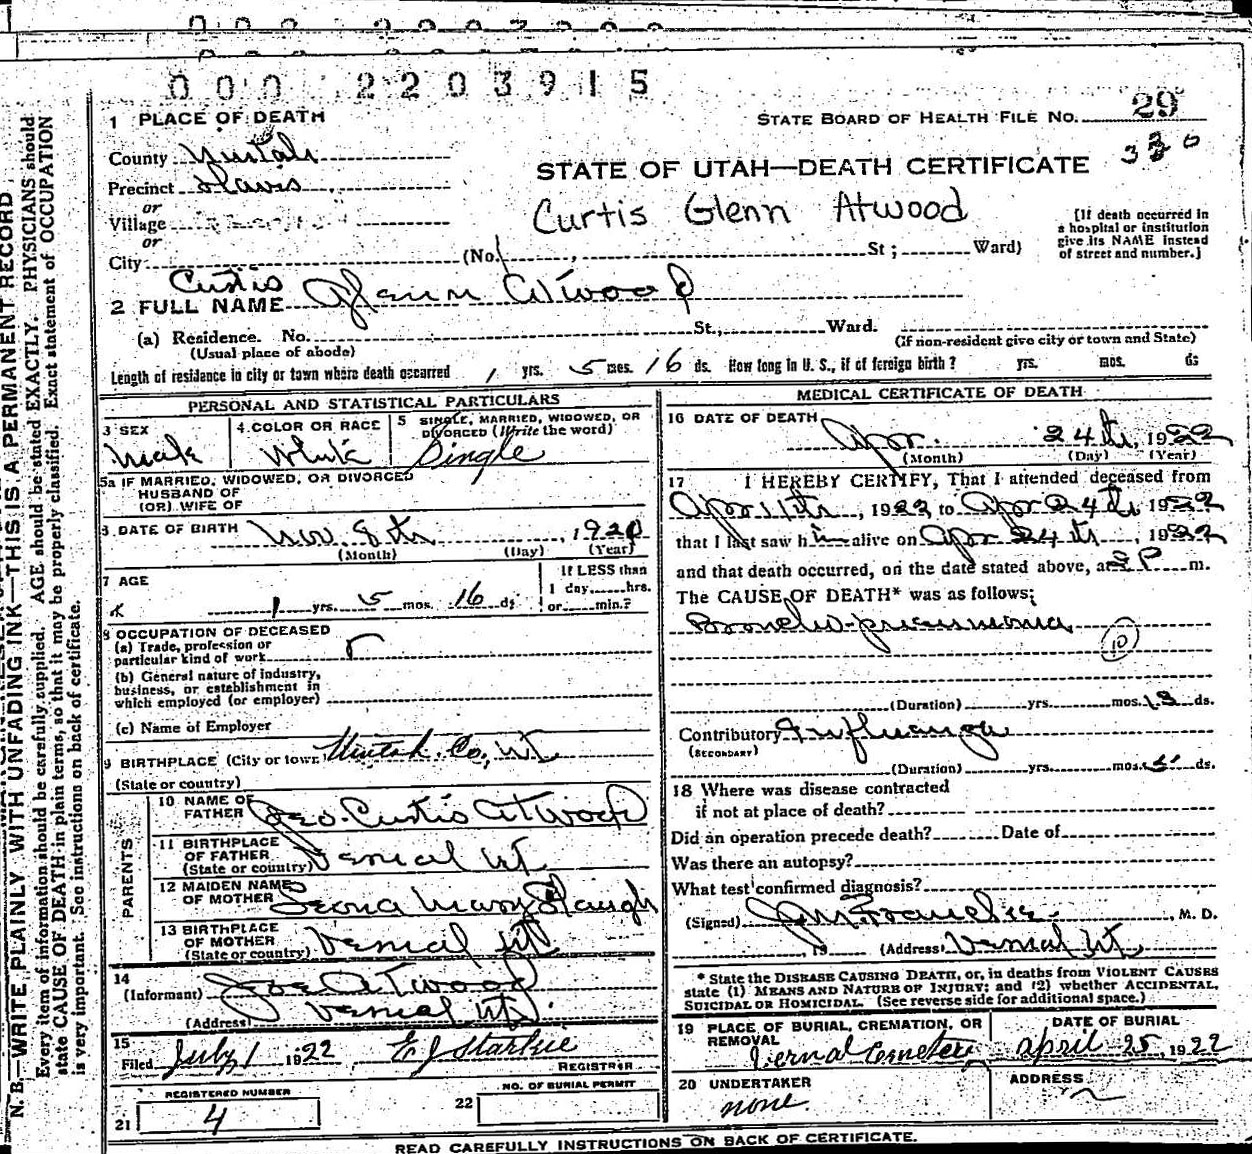 000 2203915
1 PLACE OF DEATH
STATE BOARD OF HEALTH FILE NO. 29
County Uintah
STATE OF UTAH—DEATH CERTIFICATE
Precinct Davis
or
Village
Curtis Glenn Atwood
[If death occurred in
a hospital or institution
give its NAME instead
of street and number.]
or
City (No. , St; Ward)
Curtis
2 FULL NAME Glenn Atwood
(a) Residence. No. St., Ward.
(Usual place of abode) (If non-resident give city or town and State)
Length of residence in city or town where death occurred 1 yrs. 5 mos. 16 ds. How long in U. S., if of foreign birth? yrs. mos. ds
PERSONAL AND STATISTICAL PARTICULARS
3 SEX Male
4 COLOR OR RACE White
5 SINGLE, MARRIED, WIDOWED, OR DIVORCED (Write the word) Single
5a IF MARRIED, WIDOWED, OR DIVORCED
HUSBAND OF
(OR) WIFE OF
6 DATE OF BIRTH Nov. 8th, 1920
(Month) (Day) (Year)
7 AGE
1 yrs. 5 mos. 16 ds
If LESS than
1 day, hrs.
or min.?
8 OCCUPATION OF DECEASED
(a) Trade, profession or
particular kind of work
(b) General nature of industry,
business, or establishment in
which employed (or employer)
(c) Name of Employer
9 BIRTHPLACE (City or town) Uintah Co, Ut
(State or country)
PARENTS
10 NAME OF FATHER Geo. Curtis Atwood
11 BIRTHPLACE OF FATHER (State or country) Vernal Ut
12 MAIDEN NAME OF MOTHER Leona Mary Slaugh
13 BIRTHPLACE OF MOTHER (State or country) Vernal Ut
14
(Informant) Joe Atwood
(Address) Vernal Ut.
15
Filed July 1 1922 E J Starkie
REGISTRAR
REGISTERED NUMBER
21 4
NO. OF BURIAL PERMIT
22
MEDICAL CERTIFICATE OF DEATH
16 DATE OF DEATH Apr. 24th, 1922
(Month) (Day) (Year)
17 I HEREBY CERTIFY, That I attended deceased from
Apr 11th, 1922 to Apr 24th 1922
that I last saw him alive on Apr 24th, 1922
and that death occurred, on the date stated above, at 2 P m.
The CAUSE OF DEATH* was as follows:
Broncho-pneumonia
10
(Duration) yrs. mos. 13 ds.
Contributory Influenza
(SECONDARY)
(Duration) yrs. mos. 5 ds.
18 Where was disease contracted
if not at place of death?
Did an operation precede death? Date of
Was there an autopsy?
What test confirmed diagnosis?
(Signed) , M. D.
, 19 (Address) Vernal Ut
* State the DISEASE CAUSING DEATH, or, in deaths from VIOLENT CAUSES
state (1) MEANS AND NATURE OF INJURY; and (2) whether ACCIDENTAL,
SUICIDAL OR HOMICIDAL. (See reverse side for additional space.)
19 PLACE OF BURIAL, CREMATION, OR REMOVAL
Vernal Cemetery
DATE OF BURIAL
April 25, 1922
20 UNDERTAKER
none.
ADDRESS
READ CAREFULLY INSTRUCTIONS ON BACK OF CERTIFICATE.
N. B.—WRITE PLAINLY WITH UNFADING INK—THIS IS A PERMANENT RECORD
Every item of information should be carefully supplied. AGE should be stated EXACTLY. PHYSICIANS should
state CAUSE OF DEATH in plain terms, so that it may be properly classified. Exact statement of OCCUPATION
is very important. See instructions on back of certificate.